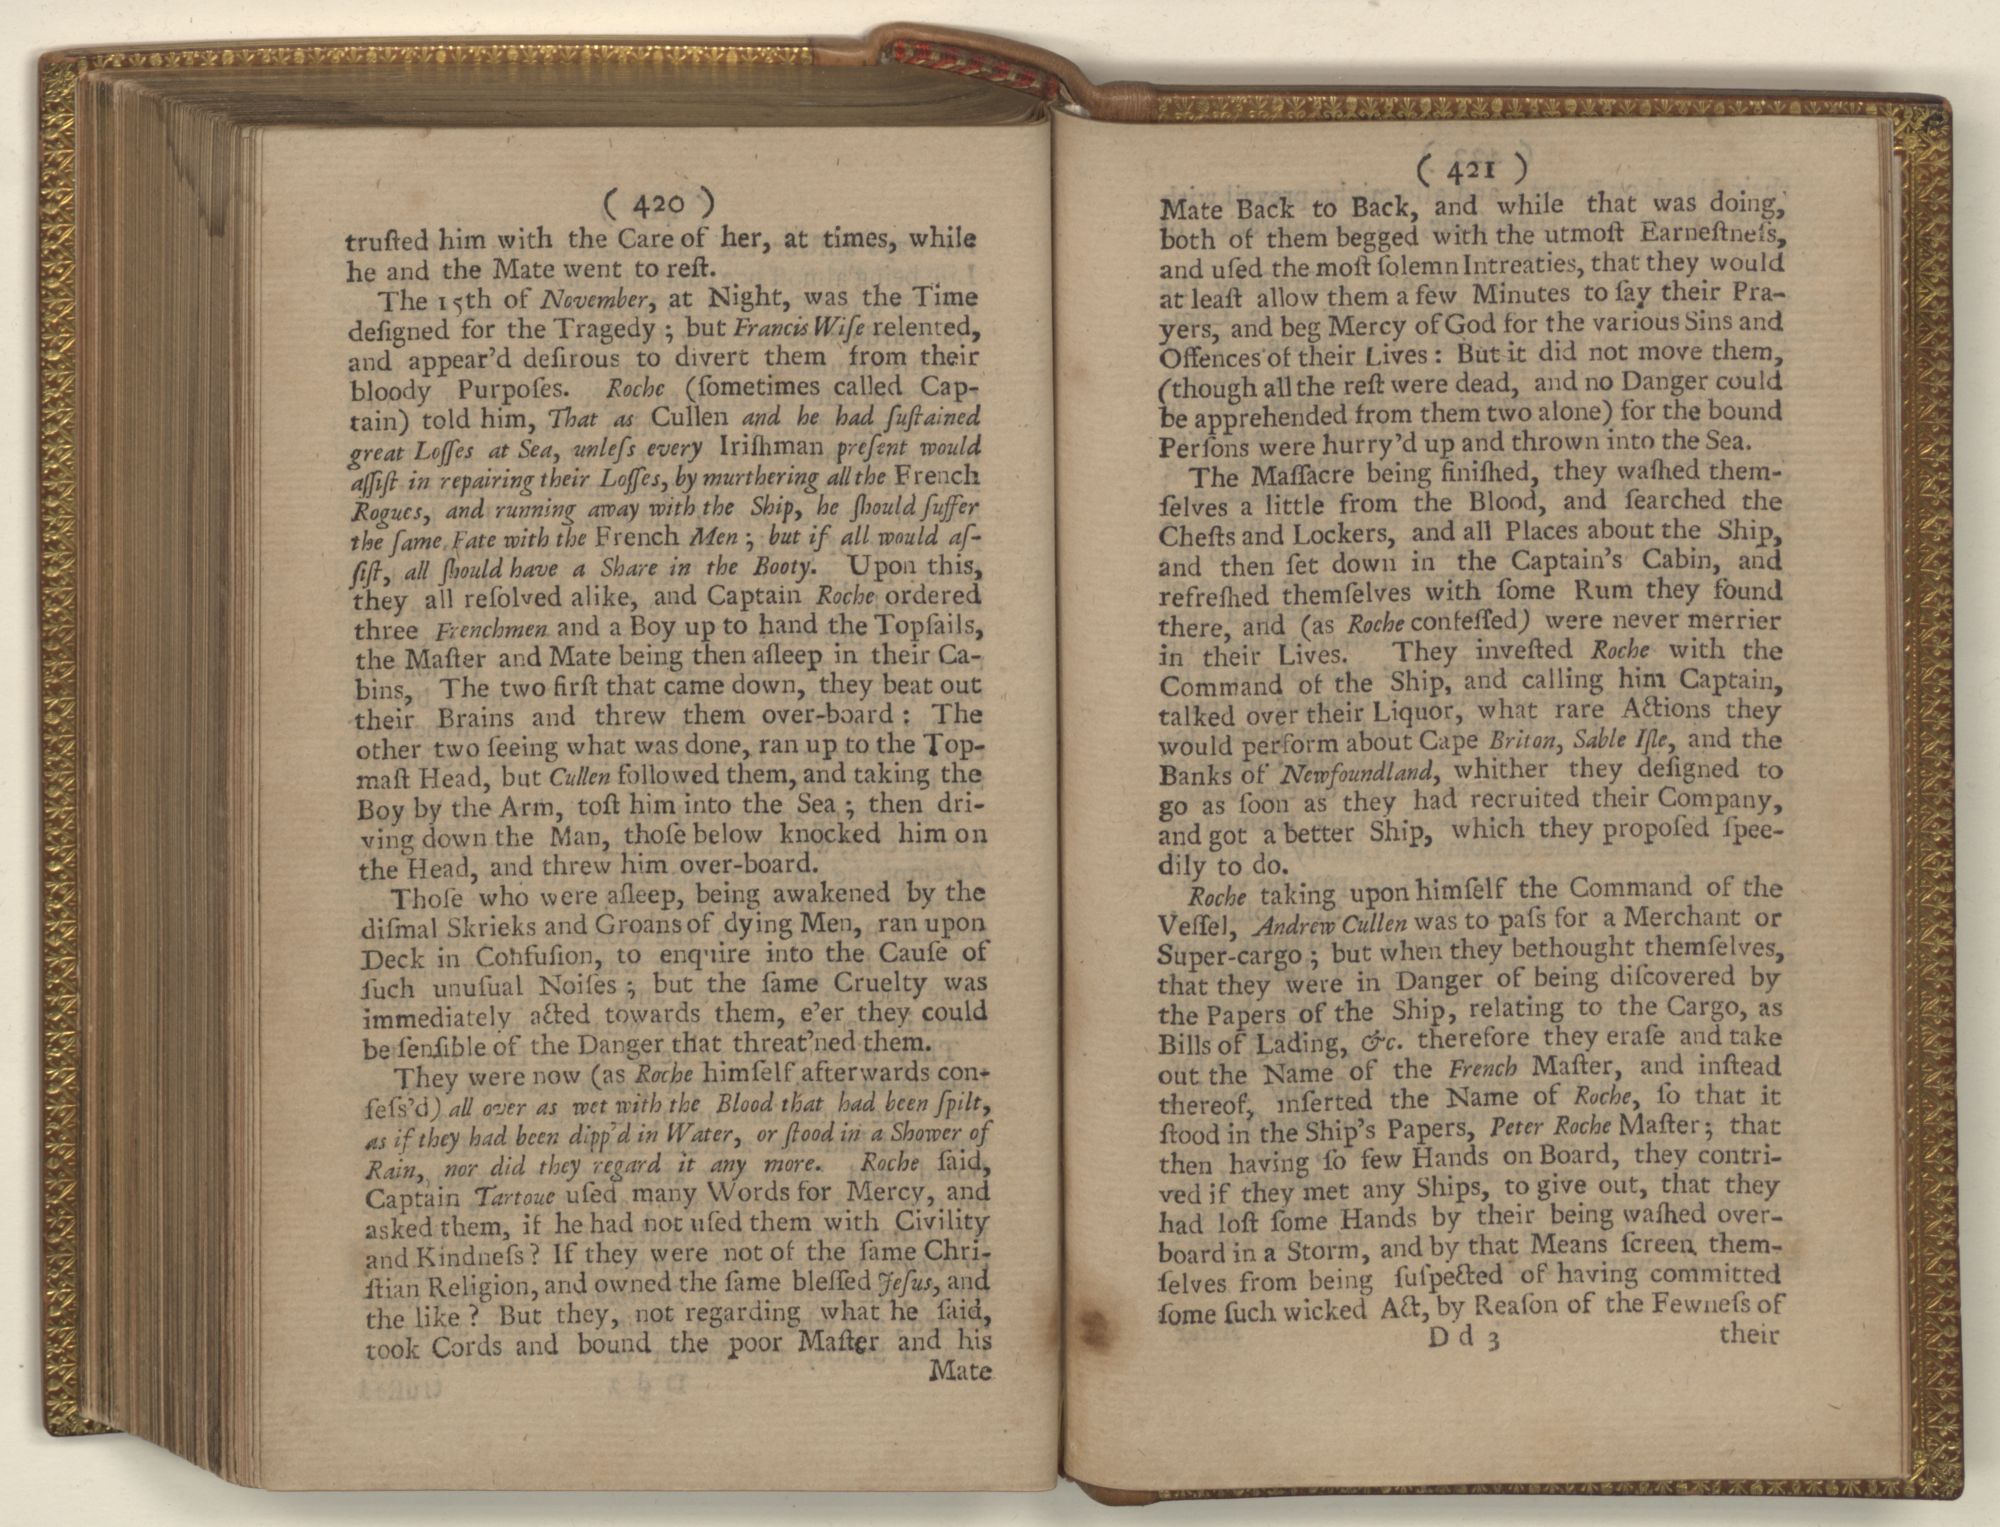 ( 420 )
truſted him with the Care of her, at times, while
he and the Mate went to reſt.
The 15th of November, at Night, was the Time
deſigned for the Tragedy ; but Francis Wiſe relented,
and appear'd deſirous to divert them from their
bloody Purpoſes. Roche (ſometimes called Cap-
tain) told him, That as Cullen and he had ſuſtained
great Loſſes at Sea, unleſs every Iriſhman preſent would
aſſiſt in repairing their Loſſes, by murthering all the French
Rogues, and running away with the Ship, he ſhould ſuffer
the ſame Fate with the French Men ; but if all would aſ-
ſiſt, all ſhould have a Share in the Booty. Upon this,
they all reſolved alike, and Captain Roche ordered
three Frenchmen and a Boy up to hand the Topſails,
the Maſter and Mate being then aſleep in their Ca-
bins, The two firſt that came down, they beat out
their Brains and threw them over-board : The
other two ſeeing what was done, ran up to the Top-
maſt Head, but Cullen followed them, and taking the
Boy by the Arm, toſt him into the Sea ; then dri-
ving down the Man, thoſe below knocked him on
the Head, and threw him over-board.
Thoſe who were aſleep, being awakened by the
diſmal Skrieks and Groans of dying Men, ran upon
Deck in Confuſion, to enquire into the Cauſe of
ſuch unuſual Noiſes ; but the ſame Cruelty was
immediately acted towards them, e'er they could
be ſenſible of the Danger that threat'ned them.
They were now (as Roche himſelf afterwards con-
feſs'd) all over as wet with the Blood that had been ſpilt,
as if they had been dipp'd in Water, or ſtood in a Shower of
Rain, nor did they regard it any more. Roche ſaid,
Captain Tartoue uſed many Words for Mercy, and
asked them, if he had not uſed them with Civility
and Kindneſs ? If they were not of the ſame Chri-
ſtian Religion, and owned the ſame bleſſed Jeſus, and
the like ? But they, not regarding what he ſaid,
took Cords and bound the poor Maſter and his
Mate
( 421 )
Mate Back to Back, and while that was doing,
both of them begged with the utmoſt Earneſtneſs,
and uſed the moſt ſolemn Intreaties, that they would
at leaſt allow them a few Minutes to ſay their Pra-
yers, and beg Mercy of God for the various Sins and
Offences of their Lives : But it did not move them,
(though all the reſt were dead, and no Danger could
be apprehended from them two alone) for the bound
Perſons were hurry'd up and thrown into the Sea.
The Maſſacre being finiſhed, they waſhed them-
ſelves a little from the Blood, and ſearched the
Cheſts and Lockers, and all Places about the Ship,
and then ſet down in the Captain's Cabin, and
refreſhed themſelves with ſome Rum they found
there, and (as Roche confeſſed) were never merrier
in their Lives. They inveſted Roche with the
Command of the Ship, and calling him Captain,
talked over their Liquor, what rare Actions they
would perform about Cape Briton, Sable Iſle, and the
Banks of Newfoundland, whither they deſigned to
go as ſoon as they had recruited their Company,
and got a better Ship, which they propoſed ſpee-
dily to do.
Roche taking upon himſelf the Command of the
Veſſel, Andrew Cullen was to paſs for a Merchant or
Super-cargo ; but when they bethought themſelves,
that they were in Danger of being diſcovered by
the Papers of the Ship, relating to the Cargo, as
Bills of Lading, &c. therefore they eraſe and take
out the Name of the French Maſter, and inſtead
thereof, inſerted the Name of Roche, ſo that it
ſtood in the Ship's Papers, Peter Roche Maſter ; that
then having ſo few Hands on Board, they contri-
ved if they met any Ships, to give out, that they
had loſt ſome Hands by their being waſhed over-
board in a Storm, and by that Means ſcreen them-
ſelves from being ſuſpected of having committed
ſome ſuch wicked Act, by Reaſon of the Fewneſs of
D d 3 their